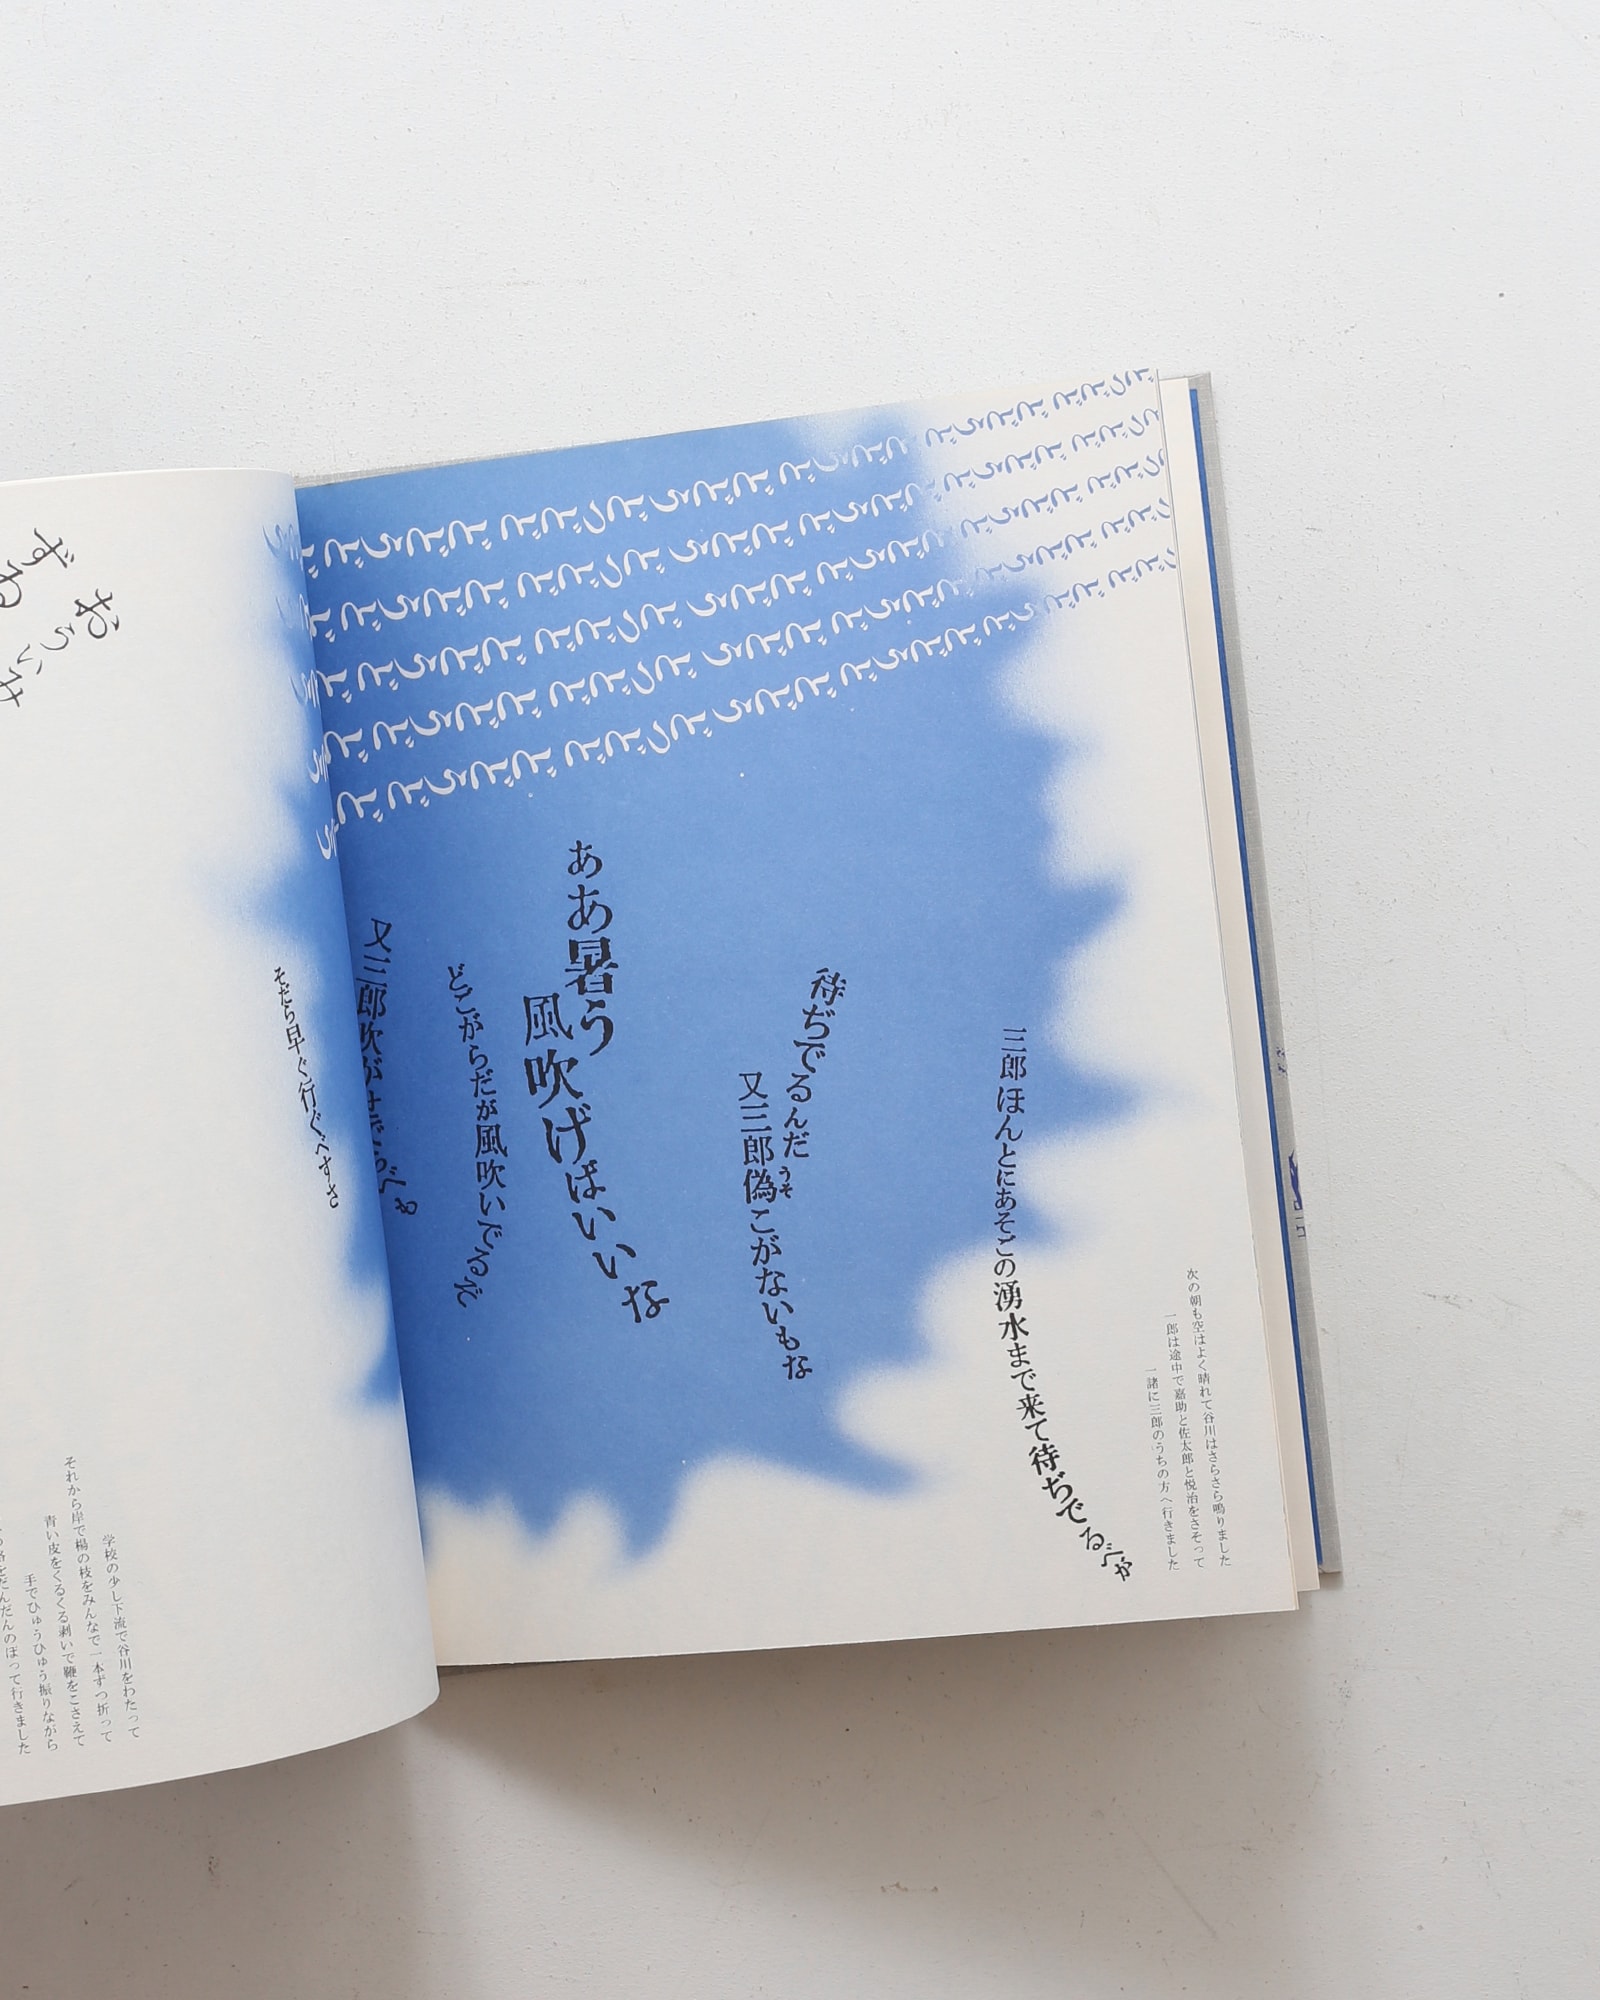 どっどど どどうど どどうど どどう
どっどど どどうど どどうど どどう
どっどど どどうど どどうど どどう
どっどど どどうど どどうど どどう
どっどど どどうど どどうど どどう
次の朝も空はよく晴れて谷川はさらさら鳴りました
一郎は途中で嘉助と佐太郎と悦治をさそって
一諸に三郎のうちの方へ行きました
三郎ほんとにあそごの湧水まで来て待ぢでるべが
待ぢでるんだ
又三郎偽こがないもな
うそ
ああ暑う
風吹げばいいな
どこがらだが風吹いでるぞ
又三郎吹がせでらべも
そだら早ぐ行ぐべすさ
学校の少し下流で谷川をわたって
それから岸で楊の枝をみんなで一本ずつ折って
青い皮をくるくる剥いで鞭をこさえて
手でひゅうひゅう振りながら
路をだんだんのぼって行きました